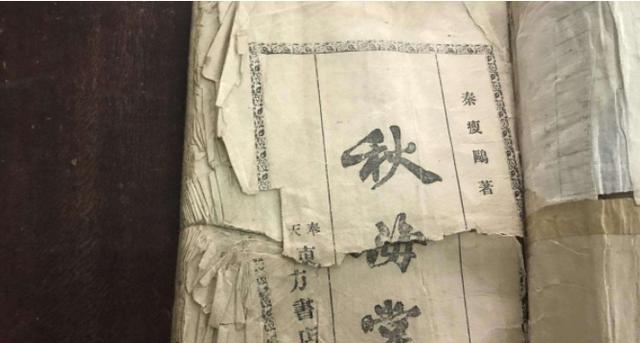 秦瘦鷗著
秋海棠
奉天
東方書店